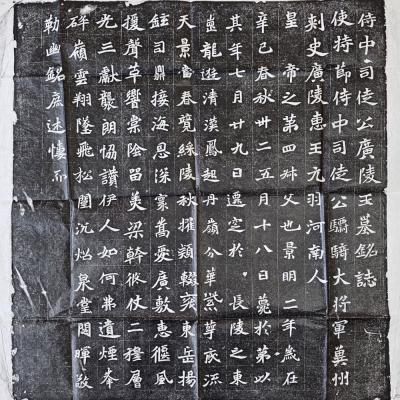 侍中司徒公廣陵王墓銘誌
使持節侍中司徒公驃騎大將軍冀州
刺史廣陵惠王元羽河南人
皇帝之第四叔父也景明二年歲在
辛巳春秋卅二五月十八日薨於第以
其年七月廿九日遷窆於長陵之東
龍遊清漢鳳起丹嶺分華紫萼底流
天景當春競綵陵秋擢穎輟袞東岳揚
鉉司鼎接海恩深褰嵩愛廣敷惠偃風
援聲革響棠陰留美梁幹徙仗二禮層
光三獻襲朗協讚伊人如何弗遺煙峯
碎嶺雲翔墜飛松闈沉炤泉堂閟暉敬
勒幽銘庶述懷不